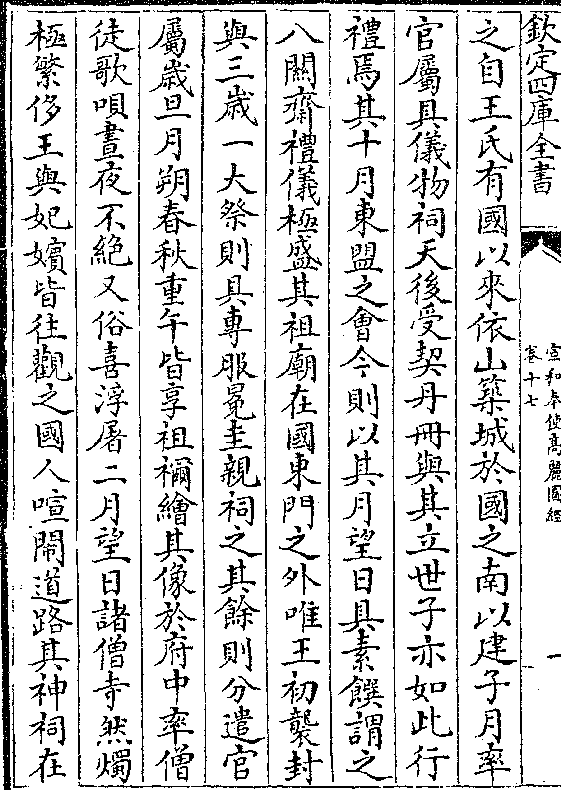 欽定四庫全書
宣和奉使髙麗圖經
卷十七
一
之自王氏有國以來依山築城於國之南以建子月率
官屬具儀物祠天後受契丹冊與其立世子亦如此行
禮焉其十月東盟之會今則以其月望日具素饌謂之
八關齋禮儀極盛其祖廟在國東門之外唯王初襲封
與三歲一大祭則具專服冕圭親祠之其餘則分遣官
屬歲旦月朔春秋重午皆享祖禰繪其像於府中率僧
徒歌唄晝夜不絶又俗喜浮屠二月望日諸僧寺然燭
極繁侈王與妃嬪皆往觀之國人喧閙道路其神祠在